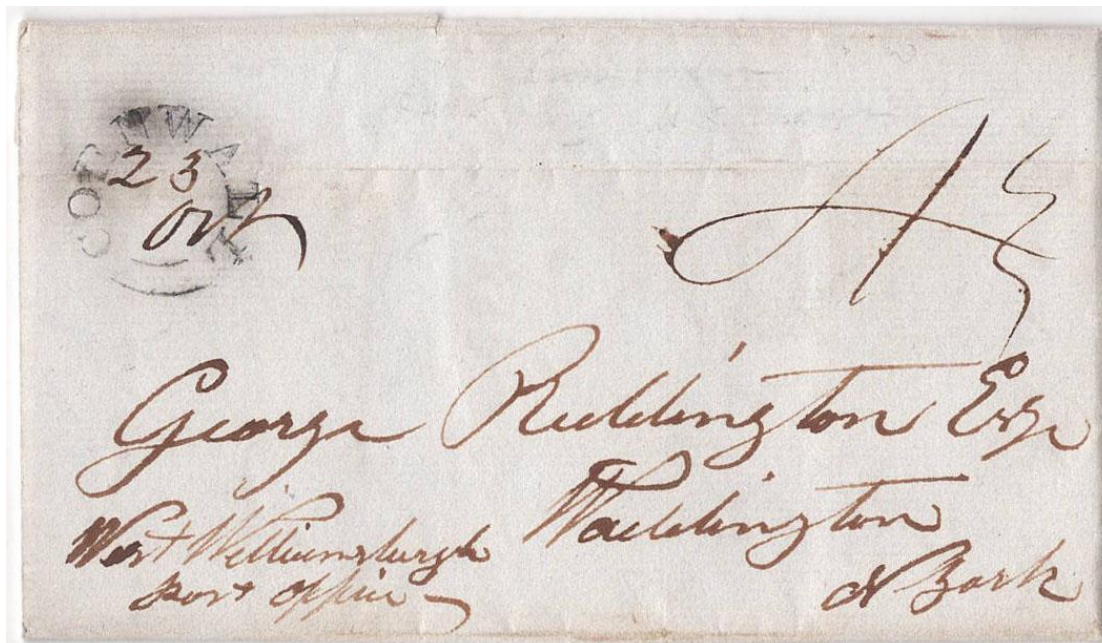 CORNWALL
23
Oct
George Reddington Esqr
Waddington
N York
West Williamsburgh
Post Office